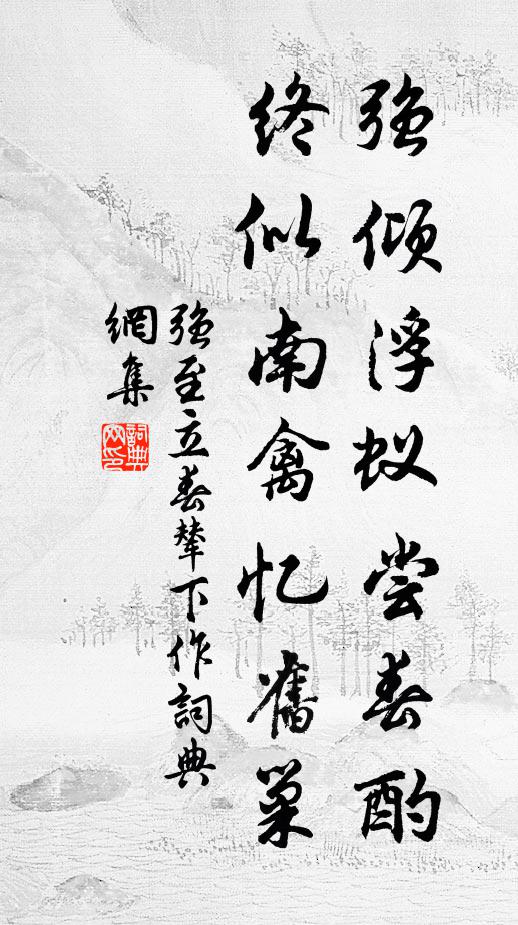 强倾浮蚁尝春酌
终似南禽忆旧巢
强至立春辇下作詞典
網集
詞典
网印